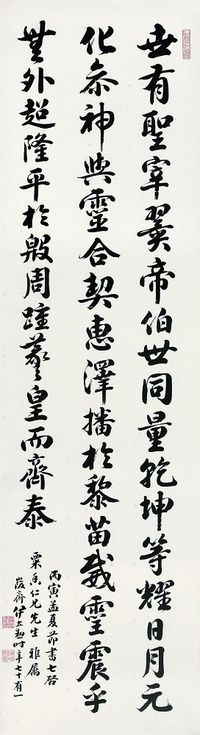 世有聖宰翼帝伯世同量乾坤等耀日月元
化叅神與靈合契惠澤播於黎苗威靈震乎
無外超隆平於殷周踵羲皇而齊泰
丙寅孟夏節書七啓
粟香仁兄先生雅属
峻齋伊立勳時年七十有一